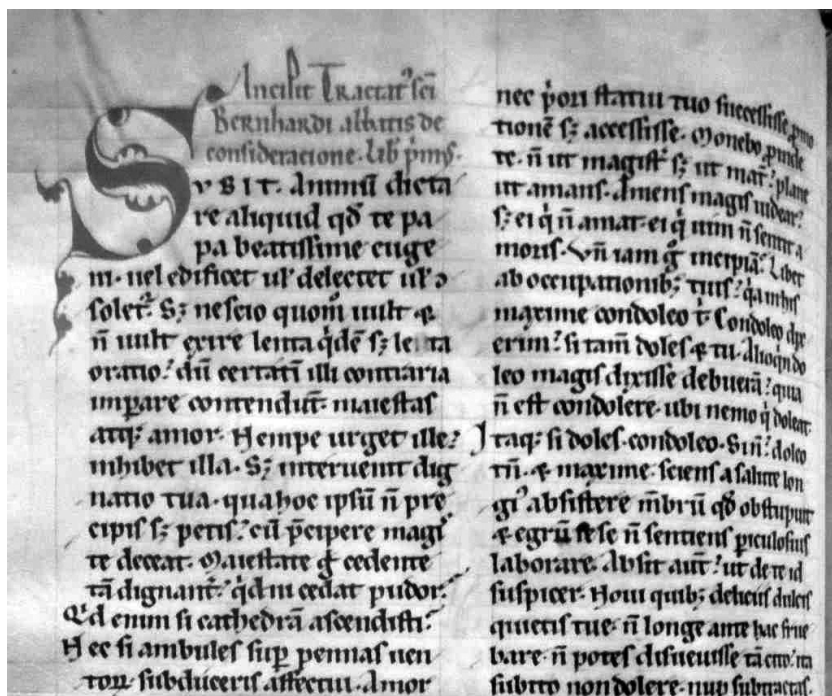 Incipit Tractat' sci
Bernhardi abbatis de
consideracione. Lib' pim'.
SVBIT. Animū dicta
re aliquid qđ te pa
pa beatissime euge
ni. uel edificet ul' delectet ul' ↄ
solet'. Sꝫ nescio quom̄ uult ⁊
n̄ uult exire lenta q̇dē sꝫ leta
oratio? dū certati illi contraria
imꝑare contendūt maiestas
atqꝫ amor. Nempe urget ille?
inhibet illa. Sꝫ interuenit dig
natio tua. qua hoc ipsū n̄ pre
cipis sꝫ petis? cū p̄cipere magi
te deceat. Maiestate g̊ cedente
tā dignant'? q̇dni cedat pudor?
Qd enim si cathedrā ascendisti?
Nec si ambules suꝑ pennas uen
torꝝ. subduceris affectui. Amor
nec p̓ori statui tuo successisse ꝓmo
tionē sꝫ accessisse. Monebo ꝓinde
te. n̄ ut magist' sꝫ ut mat'? plane
ut amans. Amens magis uidear?
sꝫ ei q̇ n̄ amat. ei q̇ uim n̄ sentit a
moris. Vn̄ iam g̊ incipiā? Libet
ab occupationibꝫ tuis? q̇a in his
maxime condoleo t'. Condoleo dix
erim? si tam̄ doles ⁊ tu. Alioqn do
leo magis dixisse debuerā? quia
n̄ est condolere. ubi nemo q̇ doleat.
Itaqꝫ si doles. condoleo. Sin̄? doleo
tn̄. ⁊ maxime. sciens a salute lon
gi' absistere mbrū qđ obstupuit
⁊ egrū sese n̄ sentiens ꝑiculosius
laborare. Absit aut'? ut de te id
suspicer. Noui quibꝫ deliciis dulcis
quietis tue. n̄ longe ante hac frue
bare. n̄ potes disueuisse tā cito? ita
subito non dolere. nuꝑ subtractas.